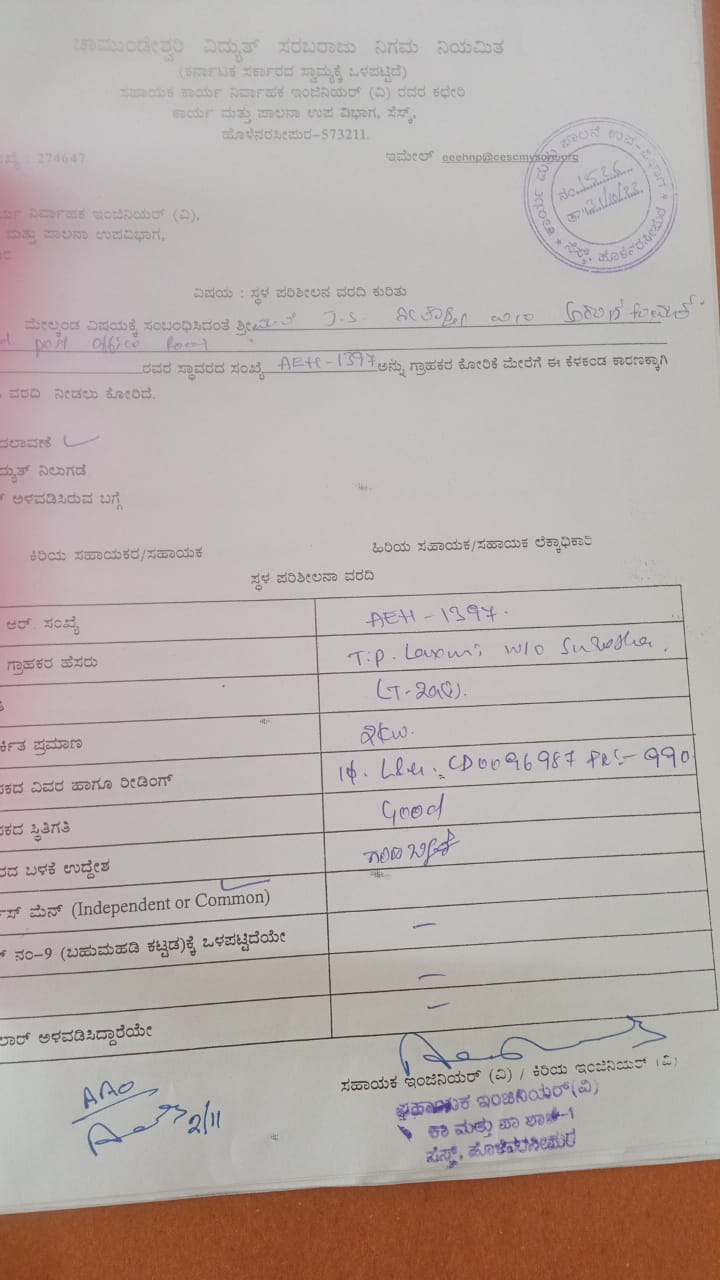 ಚಾಮುಂಡೇಶ್ವರಿ ವಿದ್ಯುತ್ ಸರಬರಾಜು ನಿಗಮ ನಿಯಮಿತ
(ಕರ್ನಾಟಕ ಸರ್ಕಾರದ ಸ್ವಾಮ್ಯಕ್ಕೆ ಒಳಪಟ್ಟಿದೆ)
ಸಹಾಯಕ ಕಾರ್ಯ ನಿರ್ವಾಹಕ ಇಂಜಿನಿಯರ್ (ವಿ) ರವರ ಕಛೇರಿ
ಕಾರ್ಯ ಮತ್ತು ಪಾಲನಾ ಉಪ ವಿಭಾಗ, ಸೆಸ್ಕ್,
ಹೊಳೆನರಸೀಪುರ-573211.
: 274647 ಇಮೇಲ್ eeehnp@cescmysore.org
ಕಾರ್ಯ ಮತ್ತು ಪಾಲನೆ ಉಪ-ವಿಭಾಗ * ಸೆಸ್ಕ್, ಹೊಳೆನರಸೀಪುರ *
ನಂ.
ನಿರ್ವಾಹಕ ಇಂಜಿನಿಯರ್ (ವಿ),
ಮತ್ತು ಪಾಲನಾ ಉಪವಿಭಾಗ,
ವಿಷಯ : ಸ್ಥಳ ಪರಿಶೀಲನ ವರದಿ ಕುರಿತು
ಮೇಲ್ಕಂಡ ವಿಷಯಕ್ಕೆ ಸಂಬಂಧಿಸಿದಂತೆ ಶ್ರೀಮತಿ J.S.
post office
ರವರ ಸ್ಥಾವರದ ಸಂಖ್ಯೆ AEH-1397 ಅನ್ನು ಗ್ರಾಹಕರ ಕೋರಿಕೆ ಮೇರೆಗೆ ಈ ಕೆಳಕಂಡ ಕಾರಣಕ್ಕಾಗಿ
ವರದಿ ನೀಡಲು ಕೋರಿದೆ.
ದಲಾವಣೆ
ದ್ಯುತ್ ನಿಲುಗಡೆ
ಅಳವಡಿಸಿರುವ ಬಗ್ಗೆ
ಕಿರಿಯ ಸಹಾಯಕರ/ಸಹಾಯಕ ಹಿರಿಯ ಸಹಾಯಕ/ಸಹಾಯಕ ಲೆಕ್ಕಾಧಿಕಾರಿ
ಸ್ಥಳ ಪರಿಶೀಲನಾ ವರದಿ
ಆರ್. ಸಂಖ್ಯೆ AEH-1397.
ಗ್ರಾಹಕರ ಹೆಸರು T.P. Laxmi w/o Suresha.
LT-2a(i).
ರ್ಕಿತ ಪ್ರಮಾಣ 2kw.
ಪಕದ ವಿವರ ಹಾಗೂ ರೀಡಿಂಗ್ CD0096987 990
ಪಕದ ಸ್ಥಿತಿಗತಿ Good
ರದ ಬಳಕೆ ಉದ್ದೇಶ
ಸ್ ಮೆನ್ (Independent or Common)
ನಂ-9 (ಬಹುಮಹಡಿ ಕಟ್ಟಡ)ಕ್ಕೆ ಒಳಪಟ್ಟಿದೆಯೇ —
—
ಲಾರ್ ಅಳವಡಿಸಿದ್ದಾರೆಯೇ —
ಸಹಾಯಕ ಇಂಜಿನಿಯರ್ (ವಿ) / ಕಿರಿಯ ಇಂಜಿನಿಯರ್ (ವಿ)
ಸಹಾಯಕ ಇಂಜಿನಿಯರ್(ವಿ)
ಕಾ ಮತ್ತು ಪಾ ಶಾಖೆ-1
ಸೆಸ್ಕ್, ಹೊಳೆನರಸೀಪುರ
AAO
2/11